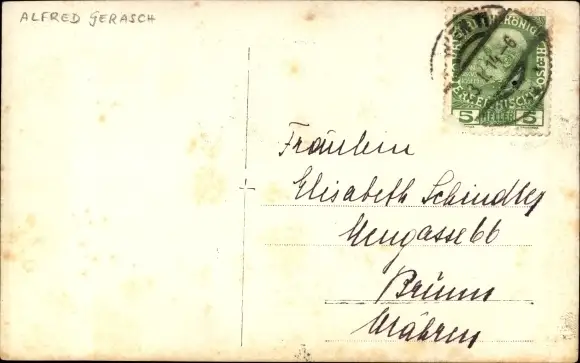 ALFRED GERASCH
14-6
5 HELLER 5
Fräulein
Elisabeth Schindler
Neugasse 66
Brünn
Mähren